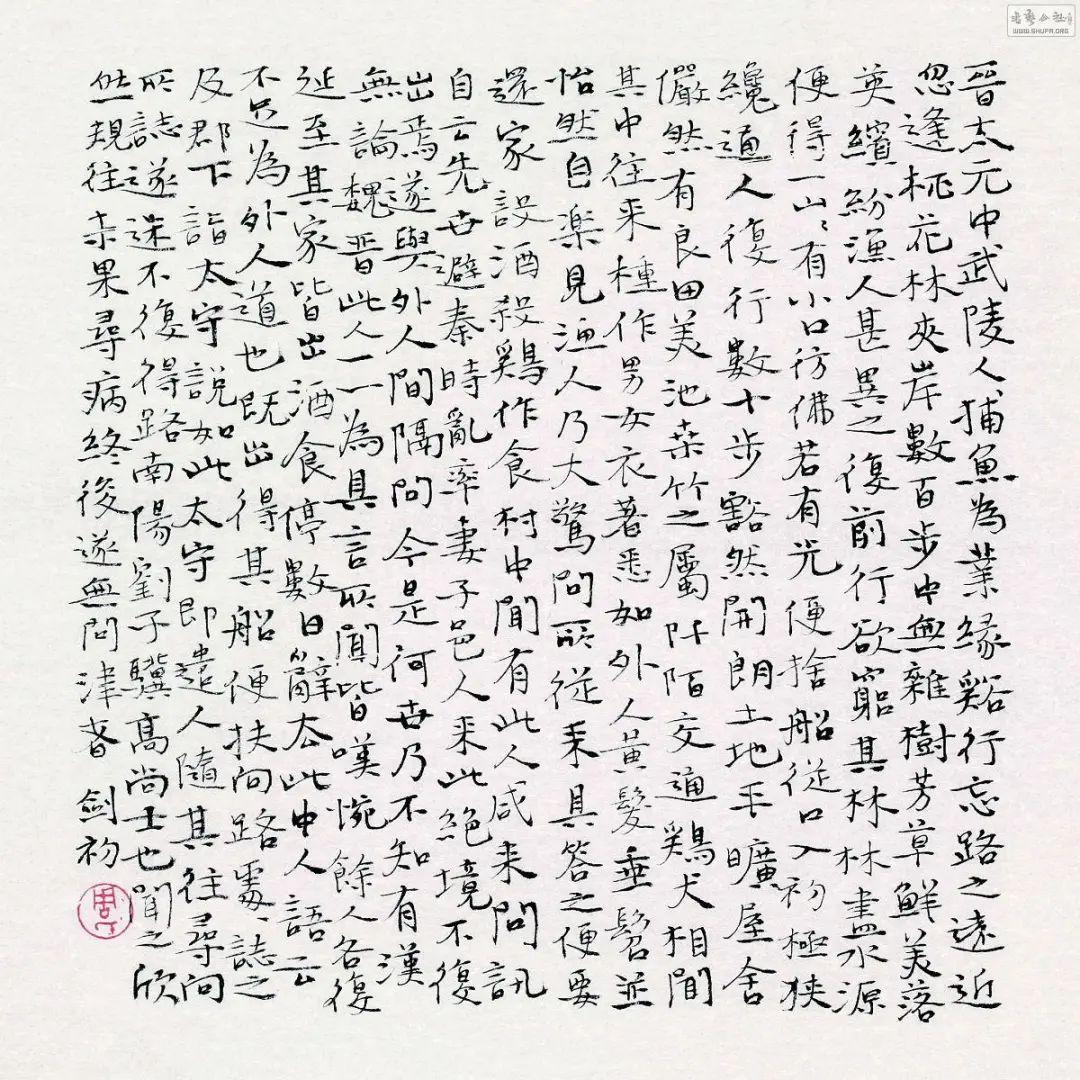 晉太元中武陵人捕魚為業緣谿行忘路之遠近
忽逢桃花林夾岸數百步中無雜樹芳草鮮美落
英繽紛漁人甚異之復前行欲窮其林林盡水源
便得一山〻有小口彷佛若有光便捨船従口入初極狹
纔通人復行數十步豁然開朗土地平曠屋舍
儼然有良田美池桒竹之屬阡陌交通鷄犬相聞
其中往来種作男女衣著悉如外人黃髮垂髫並
怡然自樂見漁人乃大驚問所従来具答之便要
還家設酒殺鷄作食村中聞有此人咸来問訊
自云先世避秦時亂率妻子邑人来此絶境不復
出焉遂與外人間隔问今是何世乃不知有漢
無論魏晉此人一一為具言所聞皆嘆惋餘人各復
延至其家皆出酒食停數日辭去此中人語云
不足為外人道也既出得其船便扶向路處〻誌之
及郡下詣太守說如此太守即遣人隨其往尋向
所誌遂迷不復得路南陽劉子驥高尚士也聞之欣
然規往未果尋病終後遂無问津者 劍初
WWW.SHUFA.ORG